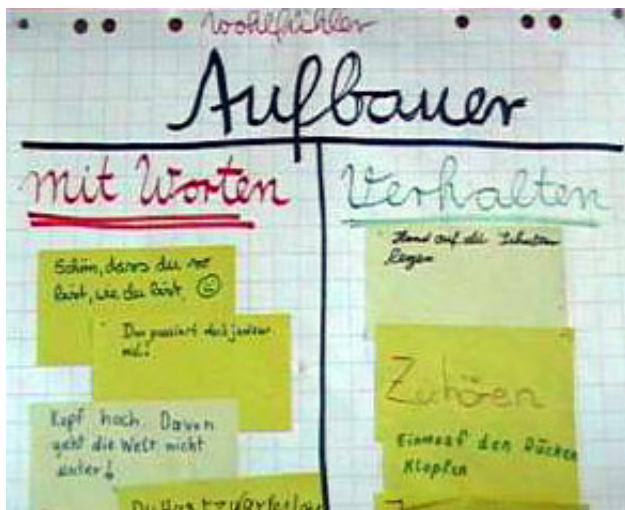 wohlfühler
Aufbauer
mit Worten
Schön, dass du so
bist, wie du bist.
Das passiert doch jedem
mal!
Kopf hoch Davon
geht die Welt nicht
unter!
Du Hast
Verhalten
Hand auf die Schulter
legen
Zuhören
Einmal auf den Rücken
Klopfen